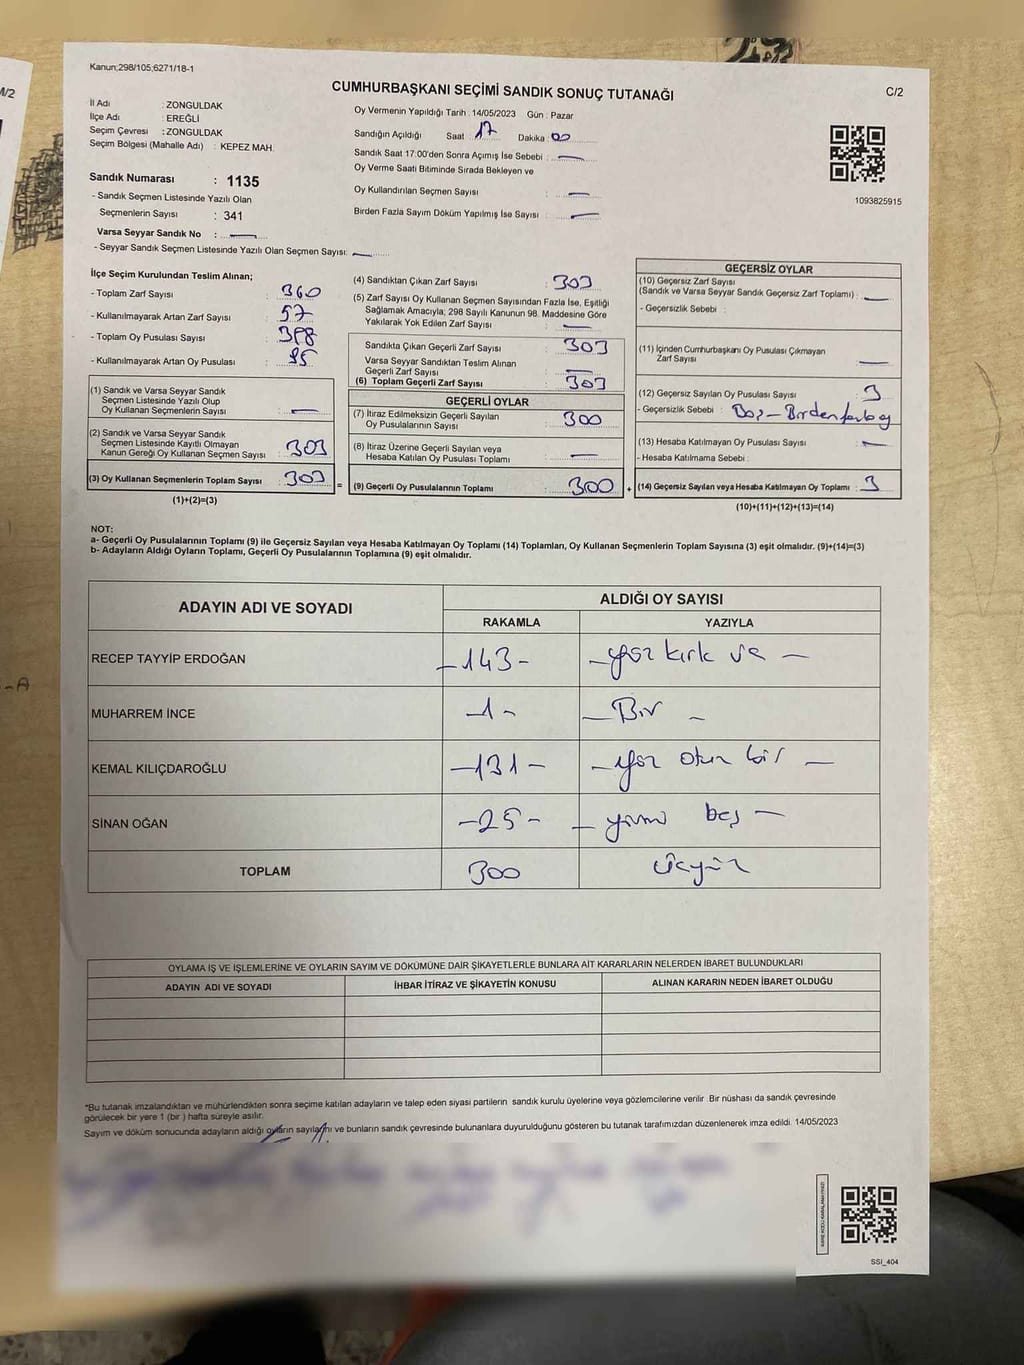 Kanun;298/105;6271/18-1
CUMHURBAŞKANI SEÇİMİ SANDIK SONUÇ TUTANAĞI
C/2
İl Adı : ZONGULDAK
İlçe Adı : EREĞLİ
Seçim Çevresi : ZONGULDAK
Seçim Bölgesi (Mahalle Adı) : KEPEZ MAH.
Sandık Numarası : 1135
- Sandık Seçmen Listesinde Yazılı Olan
Seçmenlerin Sayısı : 341
Varsa Seyyar Sandık No : —
- Seyyar Sandık Seçmen Listesinde Yazılı Olan Seçmen Sayısı: —
Oy Vermenin Yapıldığı Tarih : 14/05/2023 Gün : Pazar
Sandığın Açıldığı Saat : 17 Dakika : 00
Sandık Saat 17:00'den Sonra Açımış İse Sebebi : —
Oy Verme Saati Bitiminde Sırada Bekleyen ve
Oy Kullandırılan Seçmen Sayısı : —
Birden Fazla Sayım Döküm Yapılmış İse Sayısı : —
1093825915
İlçe Seçim Kurulundan Teslim Alınan;
- Toplam Zarf Sayısı : 360
- Kullanılmayarak Artan Zarf Sayısı : 57
- Toplam Oy Pusulası Sayısı : 398
- Kullanılmayarak Artan Oy Pusulası : 95
(1) Sandık ve Varsa Seyyar Sandık
Seçmen Listesinde Yazılı Olup
Oy Kullanan Seçmenlerin Sayısı : —
(2) Sandık ve Varsa Seyyar Sandık
Seçmen Listesinde Kayıtlı Olmayan
Kanun Gereği Oy Kullanan Seçmen Sayısı : 303
(3) Oy Kullanan Seçmenlerin Toplam Sayısı : 303
(1)+(2)=(3)
(4) Sandıktan Çıkan Zarf Sayısı : 303
(5) Zarf Sayısı Oy Kullanan Seçmen Sayısından Fazla İse, Eşitliği
Sağlamak Amacıyla; 298 Sayılı Kanunun 98. Maddesine Göre
Yakılarak Yok Edilen Zarf Sayısı : —
Sandıkta Çıkan Geçerli Zarf Sayısı : 303
Varsa Seyyar Sandıktan Teslim Alınan
Geçerli Zarf Sayısı : —
(6) Toplam Geçerli Zarf Sayısı : 303
GEÇERLİ OYLAR
(7) İtiraz Edilmeksizin Geçerli Sayılan
Oy Pusulalarının Sayısı : 300
(8) İtiraz Üzerine Geçerli Sayılan veya
Hesaba Katılan Oy Pusulası Toplamı : —
= (9) Geçerli Oy Pusulalarının Toplamı : 300 +
GEÇERSİZ OYLAR
(10) Geçersiz Zarf Sayısı
(Sandık ve Varsa Seyyar Sandık Geçersiz Zarf Toplamı) : —
- Geçersizlik Sebebi :
(11) İçinden Cumhurbaşkanı Oy Pusulası Çıkmayan
Zarf Sayısı : —
(12) Geçersiz Sayılan Oy Pusulası Sayısı : 3
- Geçersizlik Sebebi : Boş - Birden fazla oy
(13) Hesaba Katılmayan Oy Pusulası Sayısı : —
- Hesaba Katılmama Sebebi :
(14) Geçersiz Sayılan veya Hesaba Katılmayan Oy Toplamı : 3
(10)+(11)+(12)+(13)=(14)
NOT:
a- Geçerli Oy Pusulalarının Toplamı (9) ile Geçersiz Sayılan veya Hesaba Katılmayan Oy Toplamı (14) Toplamları, Oy Kullanan Seçmenlerin Toplam Sayısına (3) eşit olmalıdır. (9)+(14)=(3)
b- Adayların Aldığı Oyların Toplamı, Geçerli Oy Pusulalarının Toplamına (9) eşit olmalıdır.
ADAYIN ADI VE SOYADI
ALDIĞI OY SAYISI
RAKAMLA YAZIYLA
RECEP TAYYİP ERDOĞAN -143- - yüz kırk üç -
MUHARREM İNCE -1- - Bir -
KEMAL KILIÇDAROĞLU -131- - yüz otuz bir -
SİNAN OĞAN -25- - yirmi beş -
TOPLAM 300 Üçyüz
OYLAMA İŞ VE İŞLEMLERİNE VE OYLARIN SAYIM VE DÖKÜMÜNE DAİR ŞİKAYETLERLE BUNLARA AİT KARARLARIN NELERDEN İBARET BULUNDUKLARI
ADAYIN ADI VE SOYADI İHBAR İTİRAZ VE ŞİKAYETİN KONUSU ALINAN KARARIN NEDEN İBARET OLDUĞU
*Bu tutanak imzalandıktan ve mühürlendikten sonra seçime katılan adayların ve talep eden siyasi partilerin sandık kurulu üyelerine veya gözlemcilerine verilir. Bir nüshası da sandık çevresinde
görülecek bir yere 1 (bir ) hafta süreyle asılır.
Sayım ve döküm sonucunda adayların aldığı oyların sayılarını ve bunların sandık çevresinde bulunanlara duyurulduğunu gösteren bu tutanak tarafımızdan düzenlenerek imza edildi. 14/05/2023
SSI_404